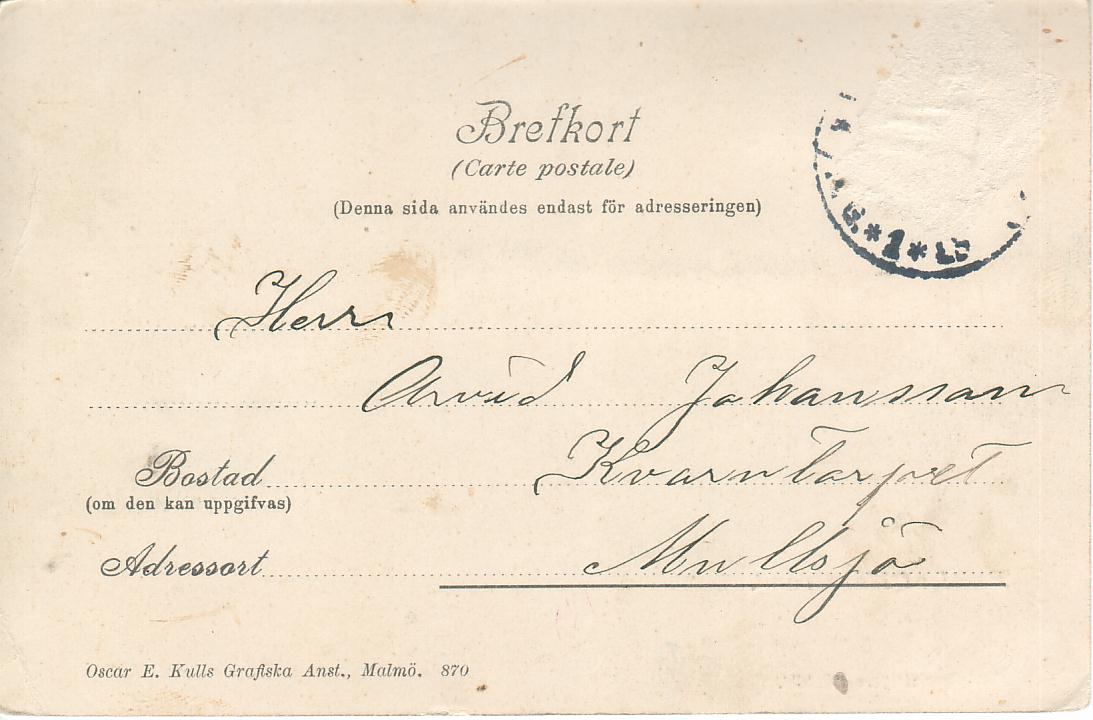 Brefkort
(Carte postale)
(Denna sida användes endast för adresseringen)
*1*
Herr
Arvid Johansson
Bostad Kvarntorpet
(om den kan uppgifvas)
Adressort Mullsjö
Oscar E. Kulls Grafiska Anst., Malmö. 870